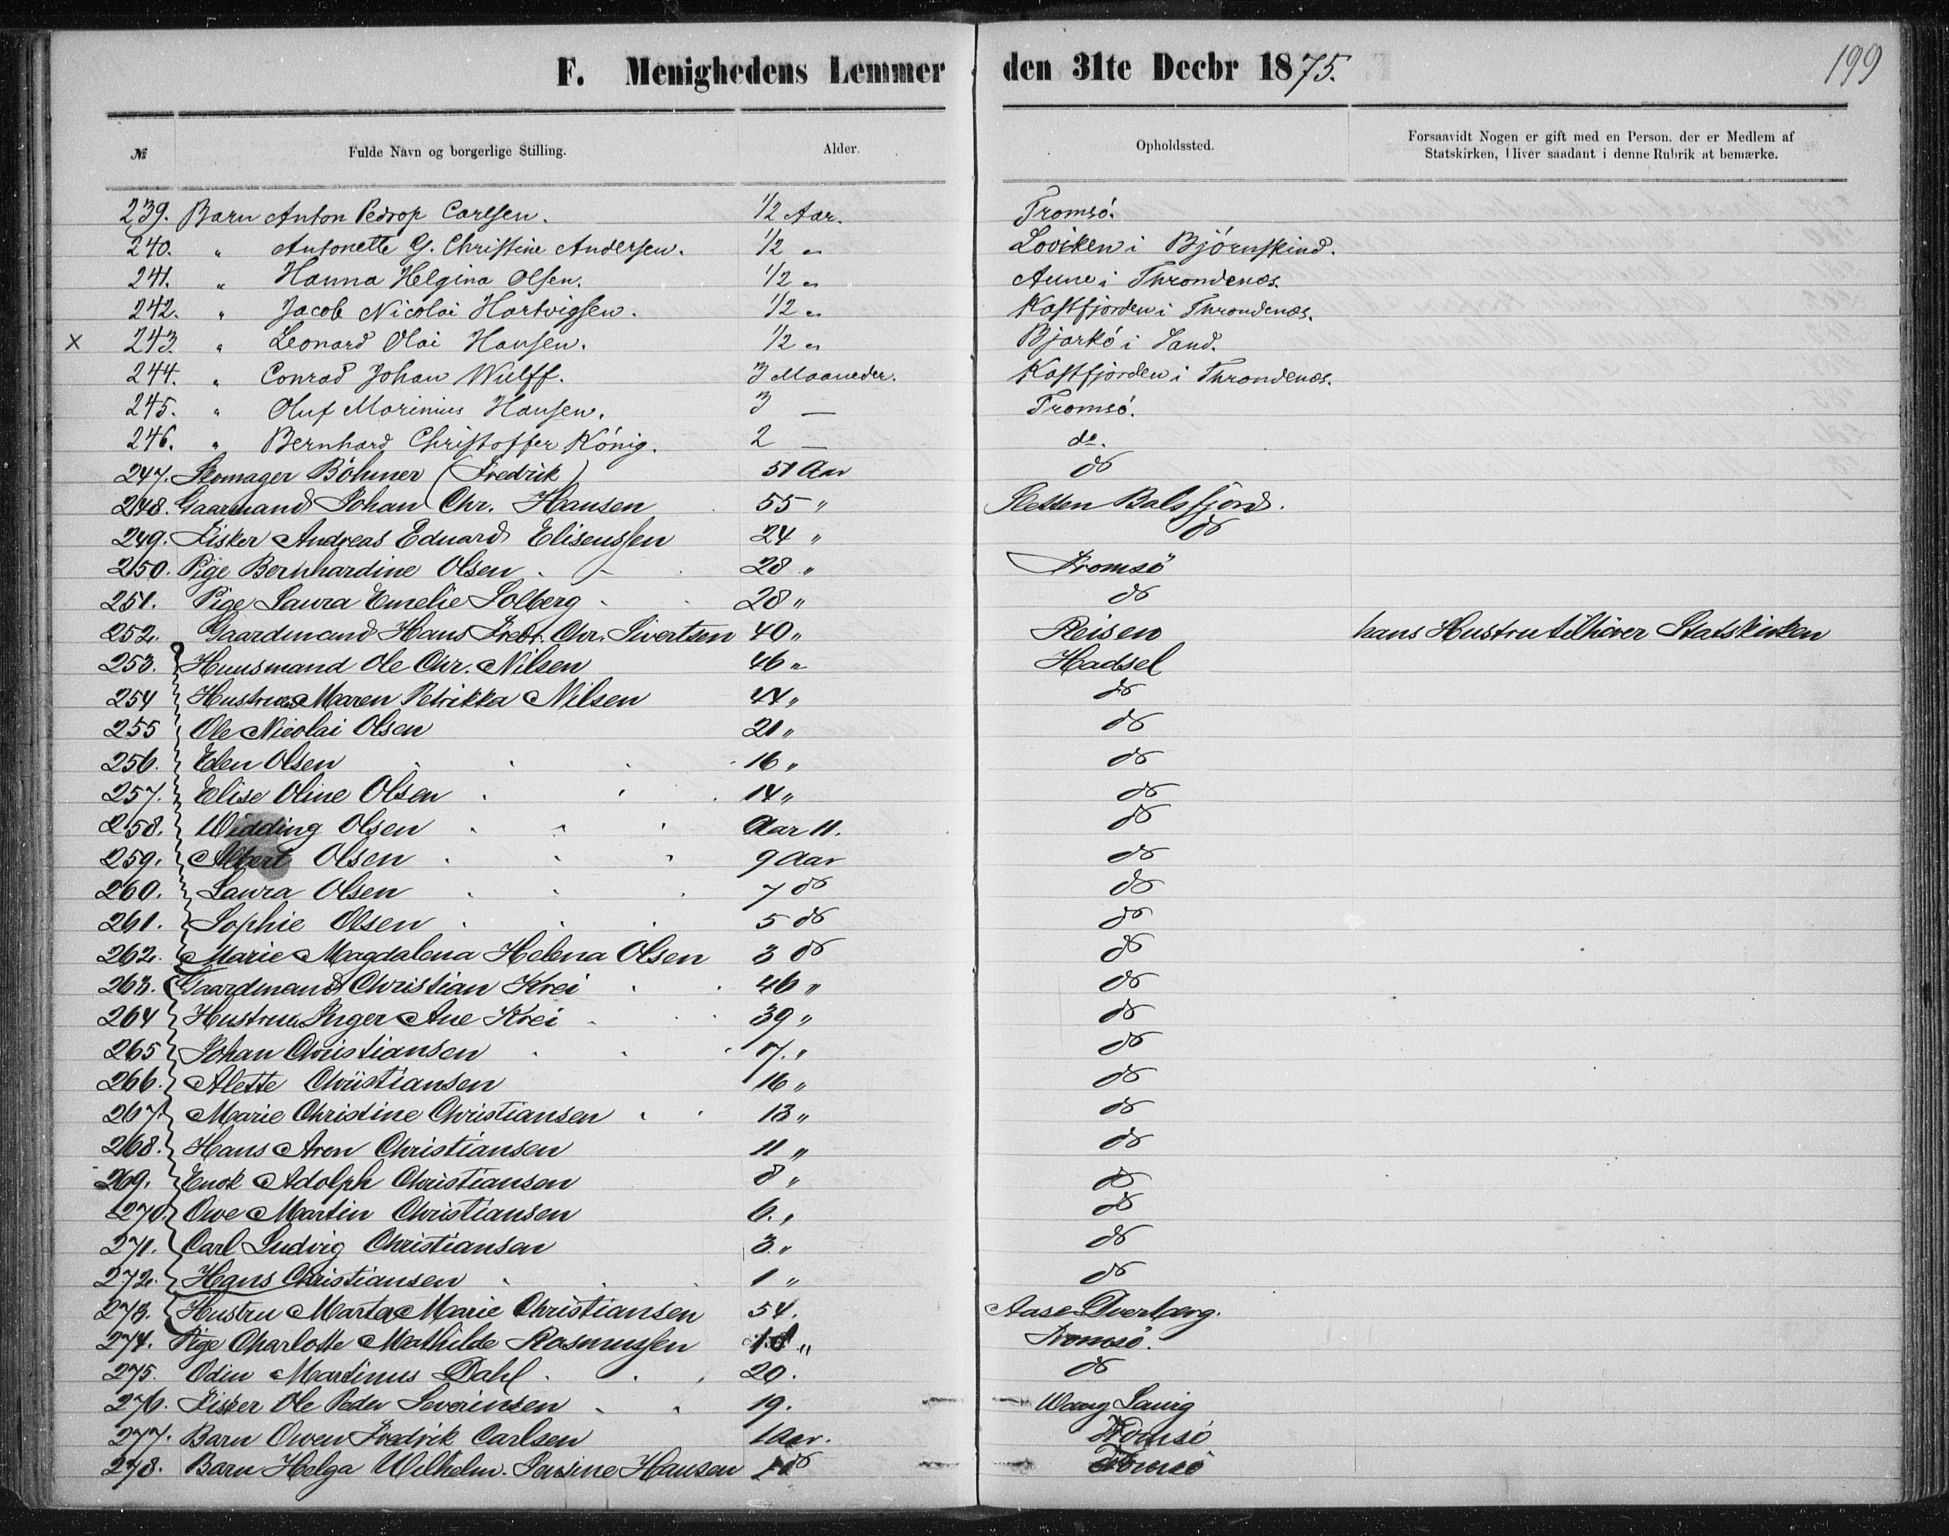 F. Menighedens Lemmer den 31te Decbr 1875. 199
№ Fulde Navn og borgerlige Stilling. Alder. Opholdssted. Forsaavidt Nogen er gift med en Person, der er Medlem af
Statskirken, bliver saadant i denne Rubrik at bemærke.
239. Barn Anton Pedrop Carlsen. 1/2 Aar. Tromsö.
240. " Antonette G. Christine Andersen. 1/2 " Loviken i Björnskind.
241. " Hanna Helgina Olsen. 1/2 " Aune i Throndenæs.
242. " Jacob Nicolai Hartvigsen. 1/2 " Kastfjorden i Throndenæs.
x 243. " Leonard Olai Hansen. 1/2 " Bjarkö i Sand.
244. " Conrad Johan Wulff. 3 Maaneder. Kastfjorden i Throndenæs.
245. " Oluf Marinius Hansen. 3 — Tromsö.
246. " Bernhard Christoffer König. 2 — do.
247. Skomager Böhmer (Fredrik) 51 Aar do
248. Gaarmand Johan Chr. Hansen 55 " Sletten Balsfjord.
249. Fisker Andreas Eduard Elisenssen 24 " do
250. Pige Bernhardine Olsen 28 " Tromsö
251. Pige Laura Emelie Solberg 28 " do
252. Gaardmand Hans Fredr. Chr. Sivertsen 40 " Reisen hans Hustru tilhörer Statskirken
253. Huusmand Ole Chr. Nilsen 46 " Hadsel
254 Hustrue Maren Petrikka Nilsen 44 " do
255 Ole Nicolai Olsen 21 " do
256. Eden Olsen 16 " do
257. Elise Oline Olsen 14 " do
258. Widding Olsen Aar 11. do
259. Albert Olsen 9 Aar do
260. Laura Olsen 7 do do
261. Sophie Olsen 5 do do
262. Marie Magdalena Helena Olsen 3 do do
263. Gaardmand Christian Krei 46 " do
264 Hustrue Inger Ane Krei 39 " do
265 Johan Christiansen 17. " do
266. Alette Christiansen 16 " do
267. Marie Christine Christiansen 13 " do
268. Hans Aren Christiansen 11 " do
269. Enok Adolph Christiansen 8 " do
270 Owe Martin Christiansen 6. " do
271. Carl Ludvig Christiansen 3. " do
272. Hans Christiansen 1 " do
273. Hustru Marta Marie Christiansen 54. Aase Dverberg.
274. Pige Charlotte Mathilde Rasmussen 18 " Tromsö.
275. Odin Martinus Dahl 20. do
276. Fisker Ole Peder Severinsen 19. Wang
277. Barn Owen Fredrik Carlsen 1 Aar. Tromsö
278. Barn Helga Wilhelm. Hansen do Tromsö